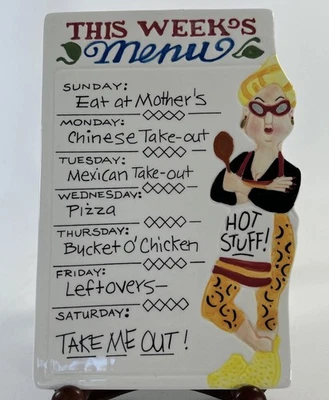 THIS WEEK'S
Menu
SUNDAY:
Eat at Mother's
MONDAY:
Chinese Take-out
TUESDAY:
Mexican Take-out
WEDNESDAY:
Pizza
THURSDAY:
Bucket O' Chicken
FRIDAY:
Leftovers—
SATURDAY:
TAKE ME OUT!
HOT
STUFF!